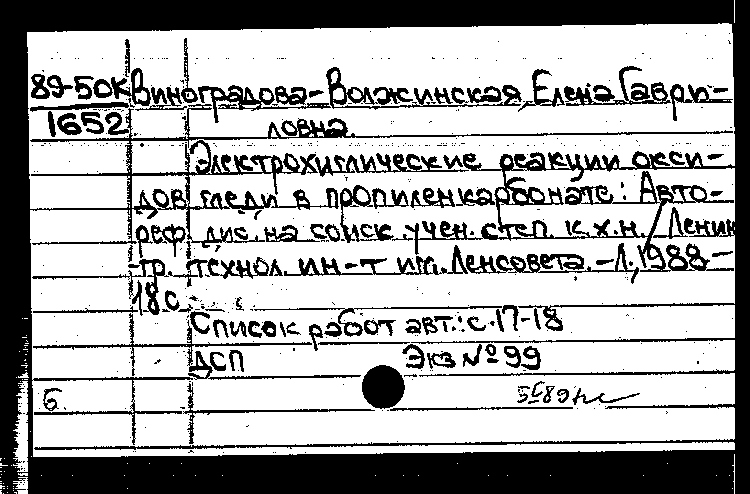 89-50к Виноградова-Волжинская, Елена Гаври-
1652 ловна.
Электрохимические реакции окси-
дов меди в пропиленкарбонате: Авто-
реф. дис. на соиск. учен. степ. к.х.н. / Ленин
тр. технол. ин-т им. Ленсовета. - Л., 1988 -
18 с.
Список работ авт.: с. 17-18
ДСП Экз № 99
Б.